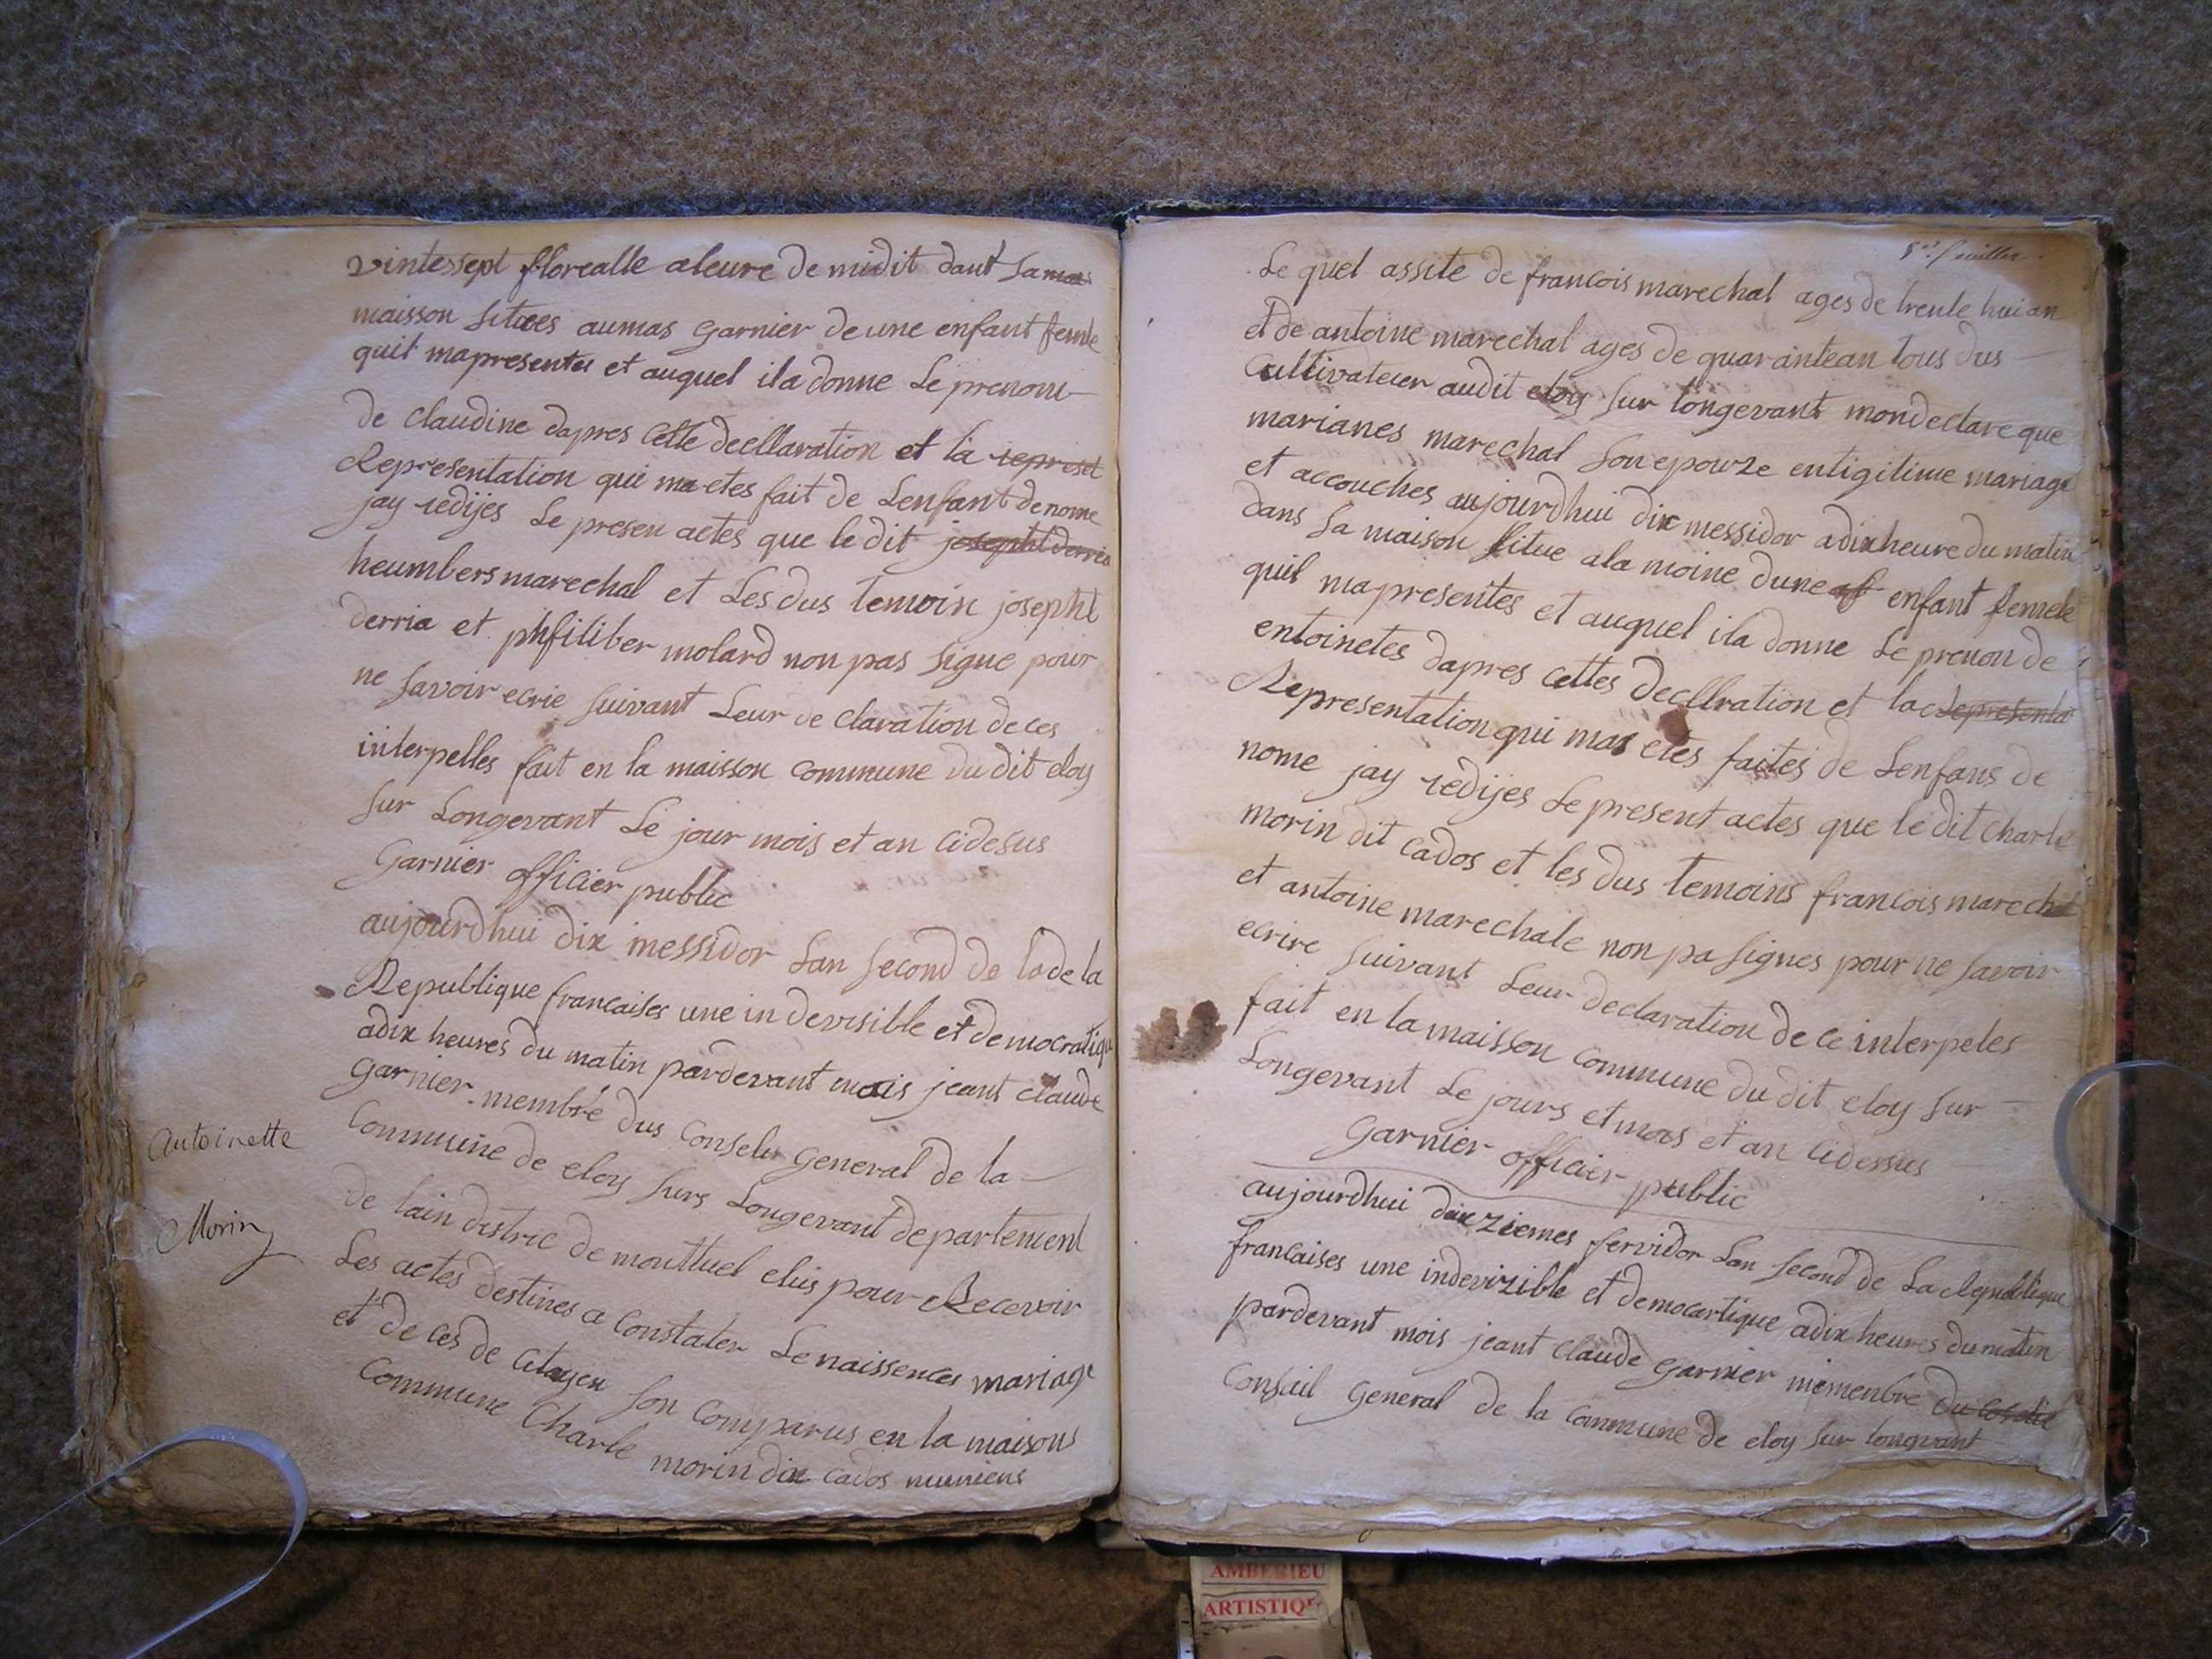 vintessept florealle aleure de midit dant sa mai
maisson sitües aumas garnier de une enfant femle
quit mapresentes et auquel ila donne Le prenom
de Claudine dapres Cette decllaration et la represet
Representation qui ma etes fait de Lenfant denome
jay redijes Le presen actes que le dit josepht derria
heumbers marechal et Les dus temoin josepht
derria et phfiliber molard non pas signe pour
ne savoir ecrie suivant Leur de claration de ces
interpelles fait en la maisson commune du dit eloy
sur Longevant Le jour mois et an Cidesus
Garnier officier public
aujourdhui dix messidor Lan second de la de la
Republique francaises une in devisible et democratique
adix heures du matin pardevant mois jeant Claude
garnier membre dus Conseler general de la
Commune de eloy surs Longevant departement
de lain distric de monttuel elus pour Recevoir
Les actes destines a Constater Le naissences mariage
et de ces de Citoyen son Comparus en la maisons
Commune Charle morin dix cados
Antoinette
Morin
5e. feuillet
Le quel assite de francois marechal ages de trente hui an
et de antoine marechal ages de quarantean tous dus
Cultivateur audit eloy sur longevant mondeclare que
marianes marechal son epouze entigitime mariage
et accouches aujourdhui dix messidor adix heure du matin
dans sa maison situe a la moine dune enfant femele
quil mapresentes et auquel ila donne Le prenon de
entoinetes dapres Cettes decllration et la Representa
Representation qui mas etes faites de Lenfans de
nome jay redijes Le present actes que le dit Charle
morin dit cados et les dus temoins francois marechal
et antoine marechale non pa signes pour ne savoir
ecrire suivant Leur declaration de ce interpeles
fait en la maisson commune du dit eloy sur
Longevant Le jours et mois et an Cidessus
Garnier officier public
aujourdhui duxziemes fervidor Lan second de La Republique
francaises une indevizible et democartique adix heures du matin
pardevant mois jeant Claude Garnier memenbre
Consail General de la Commune de eloy sur longvant
AMBERIEU
ARTISTIQ